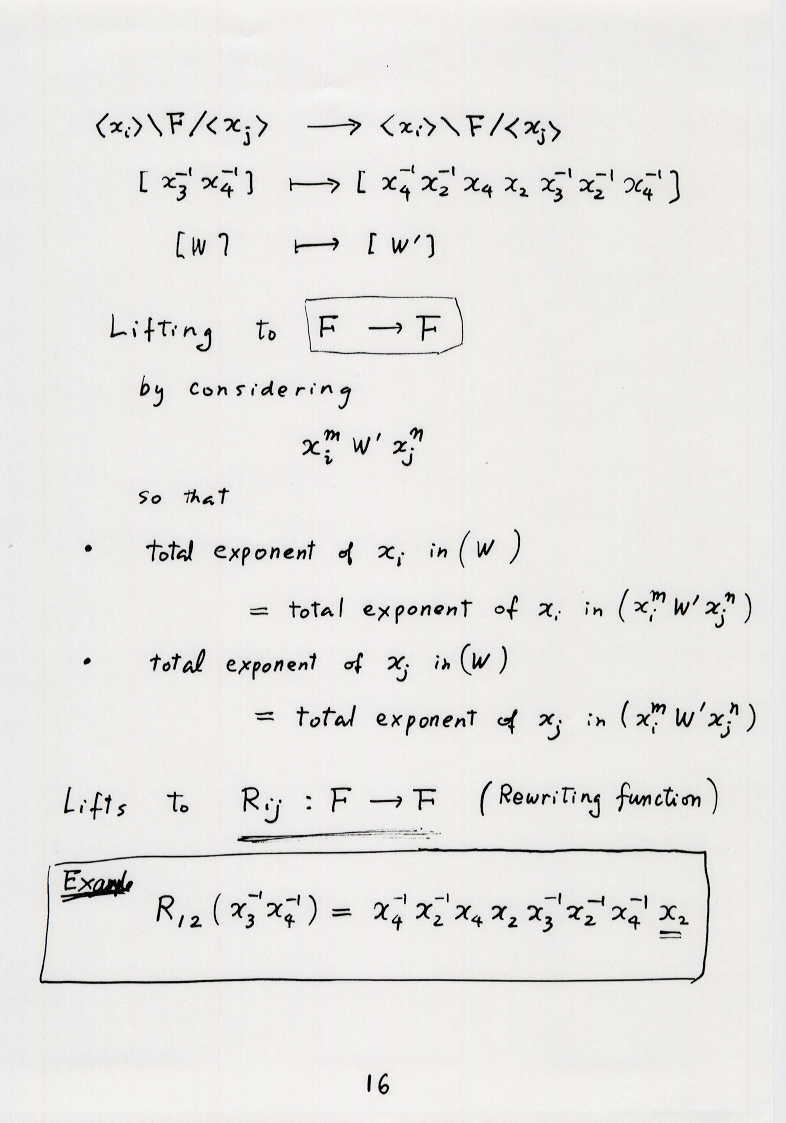 ⟨x_i⟩\F/⟨x_j⟩ ⟶ ⟨x_i⟩\F/⟨x_j⟩
[ x_3^{-1} x_4^{-1} ] ⟼ [ x_4^{-1} x_2^{-1} x_4 x_2 x_3^{-1} x_2^{-1} x_4^{-1} ]
[ W ] ⟼ [ W' ]
Lifting to F ⟶ F
by considering
x_i^m W' x_j^n
so that
• total exponent of x_i in (W)
= total exponent of x_i in (x_i^m W' x_j^n)
• total exponent of x_j in (W)
= total exponent of x_j in (x_i^m W' x_j^n)
Lifts to R_{ij} : F ⟶ F (Rewriting function)
Example
R_{12} ( x_3^{-1} x_4^{-1} ) = x_4^{-1} x_2^{-1} x_4 x_2 x_3^{-1} x_2^{-1} x_4^{-1} x_2
16